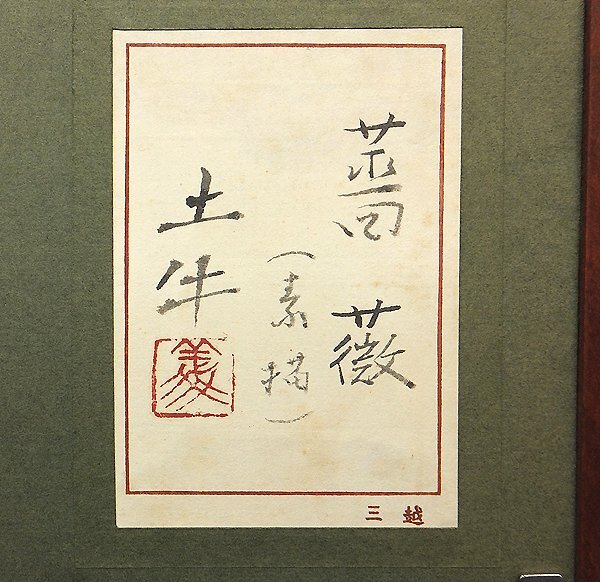 薔薇
（素描）
土牛
三越